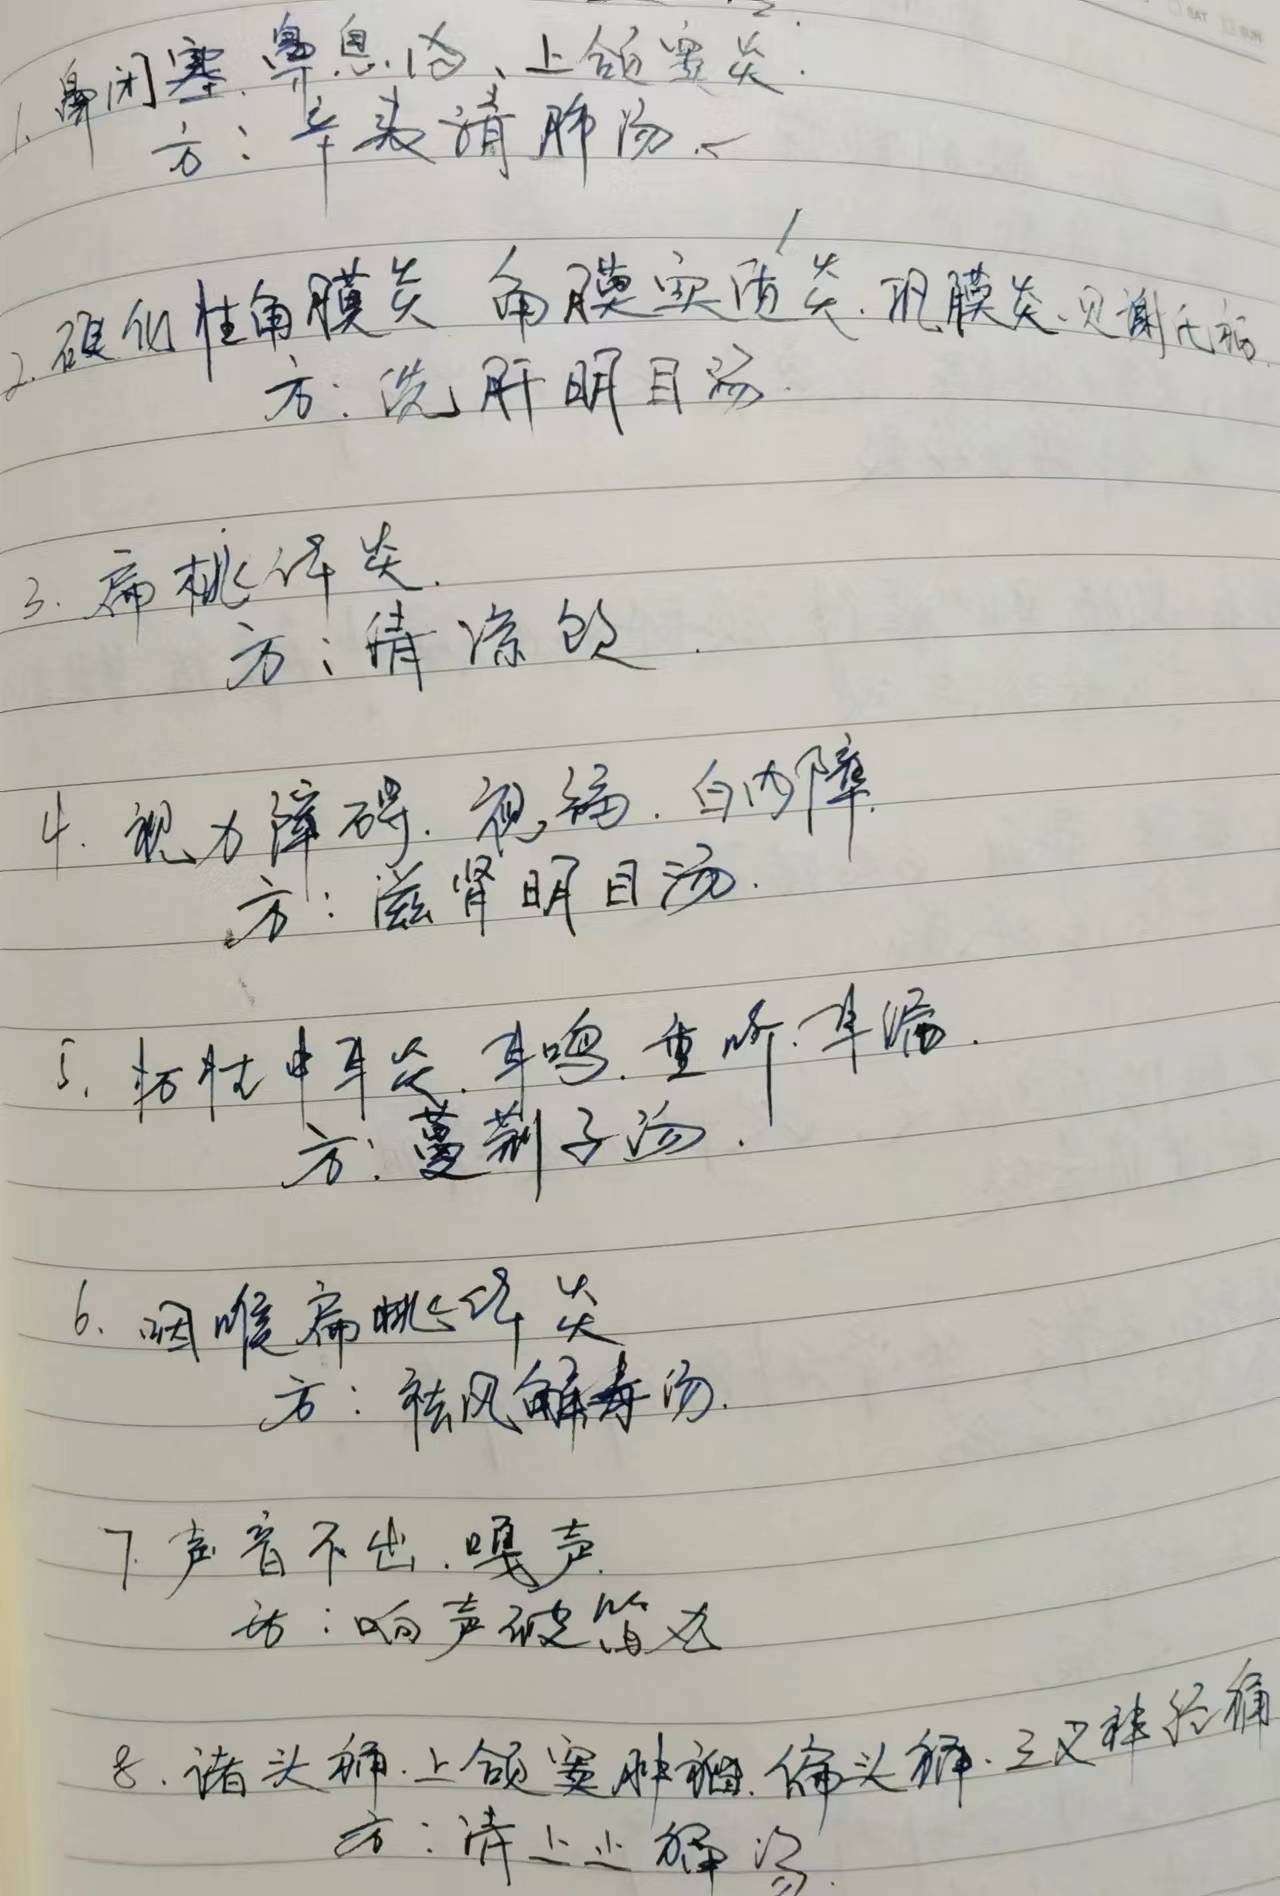 1. 鼻闭塞、鼻息肉、上颌窦炎.
方: 辛夷清肺汤.
2. 硬化性角膜炎 角膜实质炎. 巩膜炎.见谢氏病.
方: 洗肝明目汤.
3. 扁桃体炎.
方: 清凉饮.
4. 视力障碍. 视弱. 白内障.
方: 滋肾明目汤.
5. 中耳炎. 耳鸣. 重听. 耳漏.
方: 蔓荆子汤.
6. 咽喉扁桃体炎
方: 祛风解毒汤.
7. 声音不出. 嘎声.
方: 响声破笛丸
8. 诸头痛. 上颌窦肿瘤. 偏头痛. 三叉神经痛
方: 清上止痛汤.